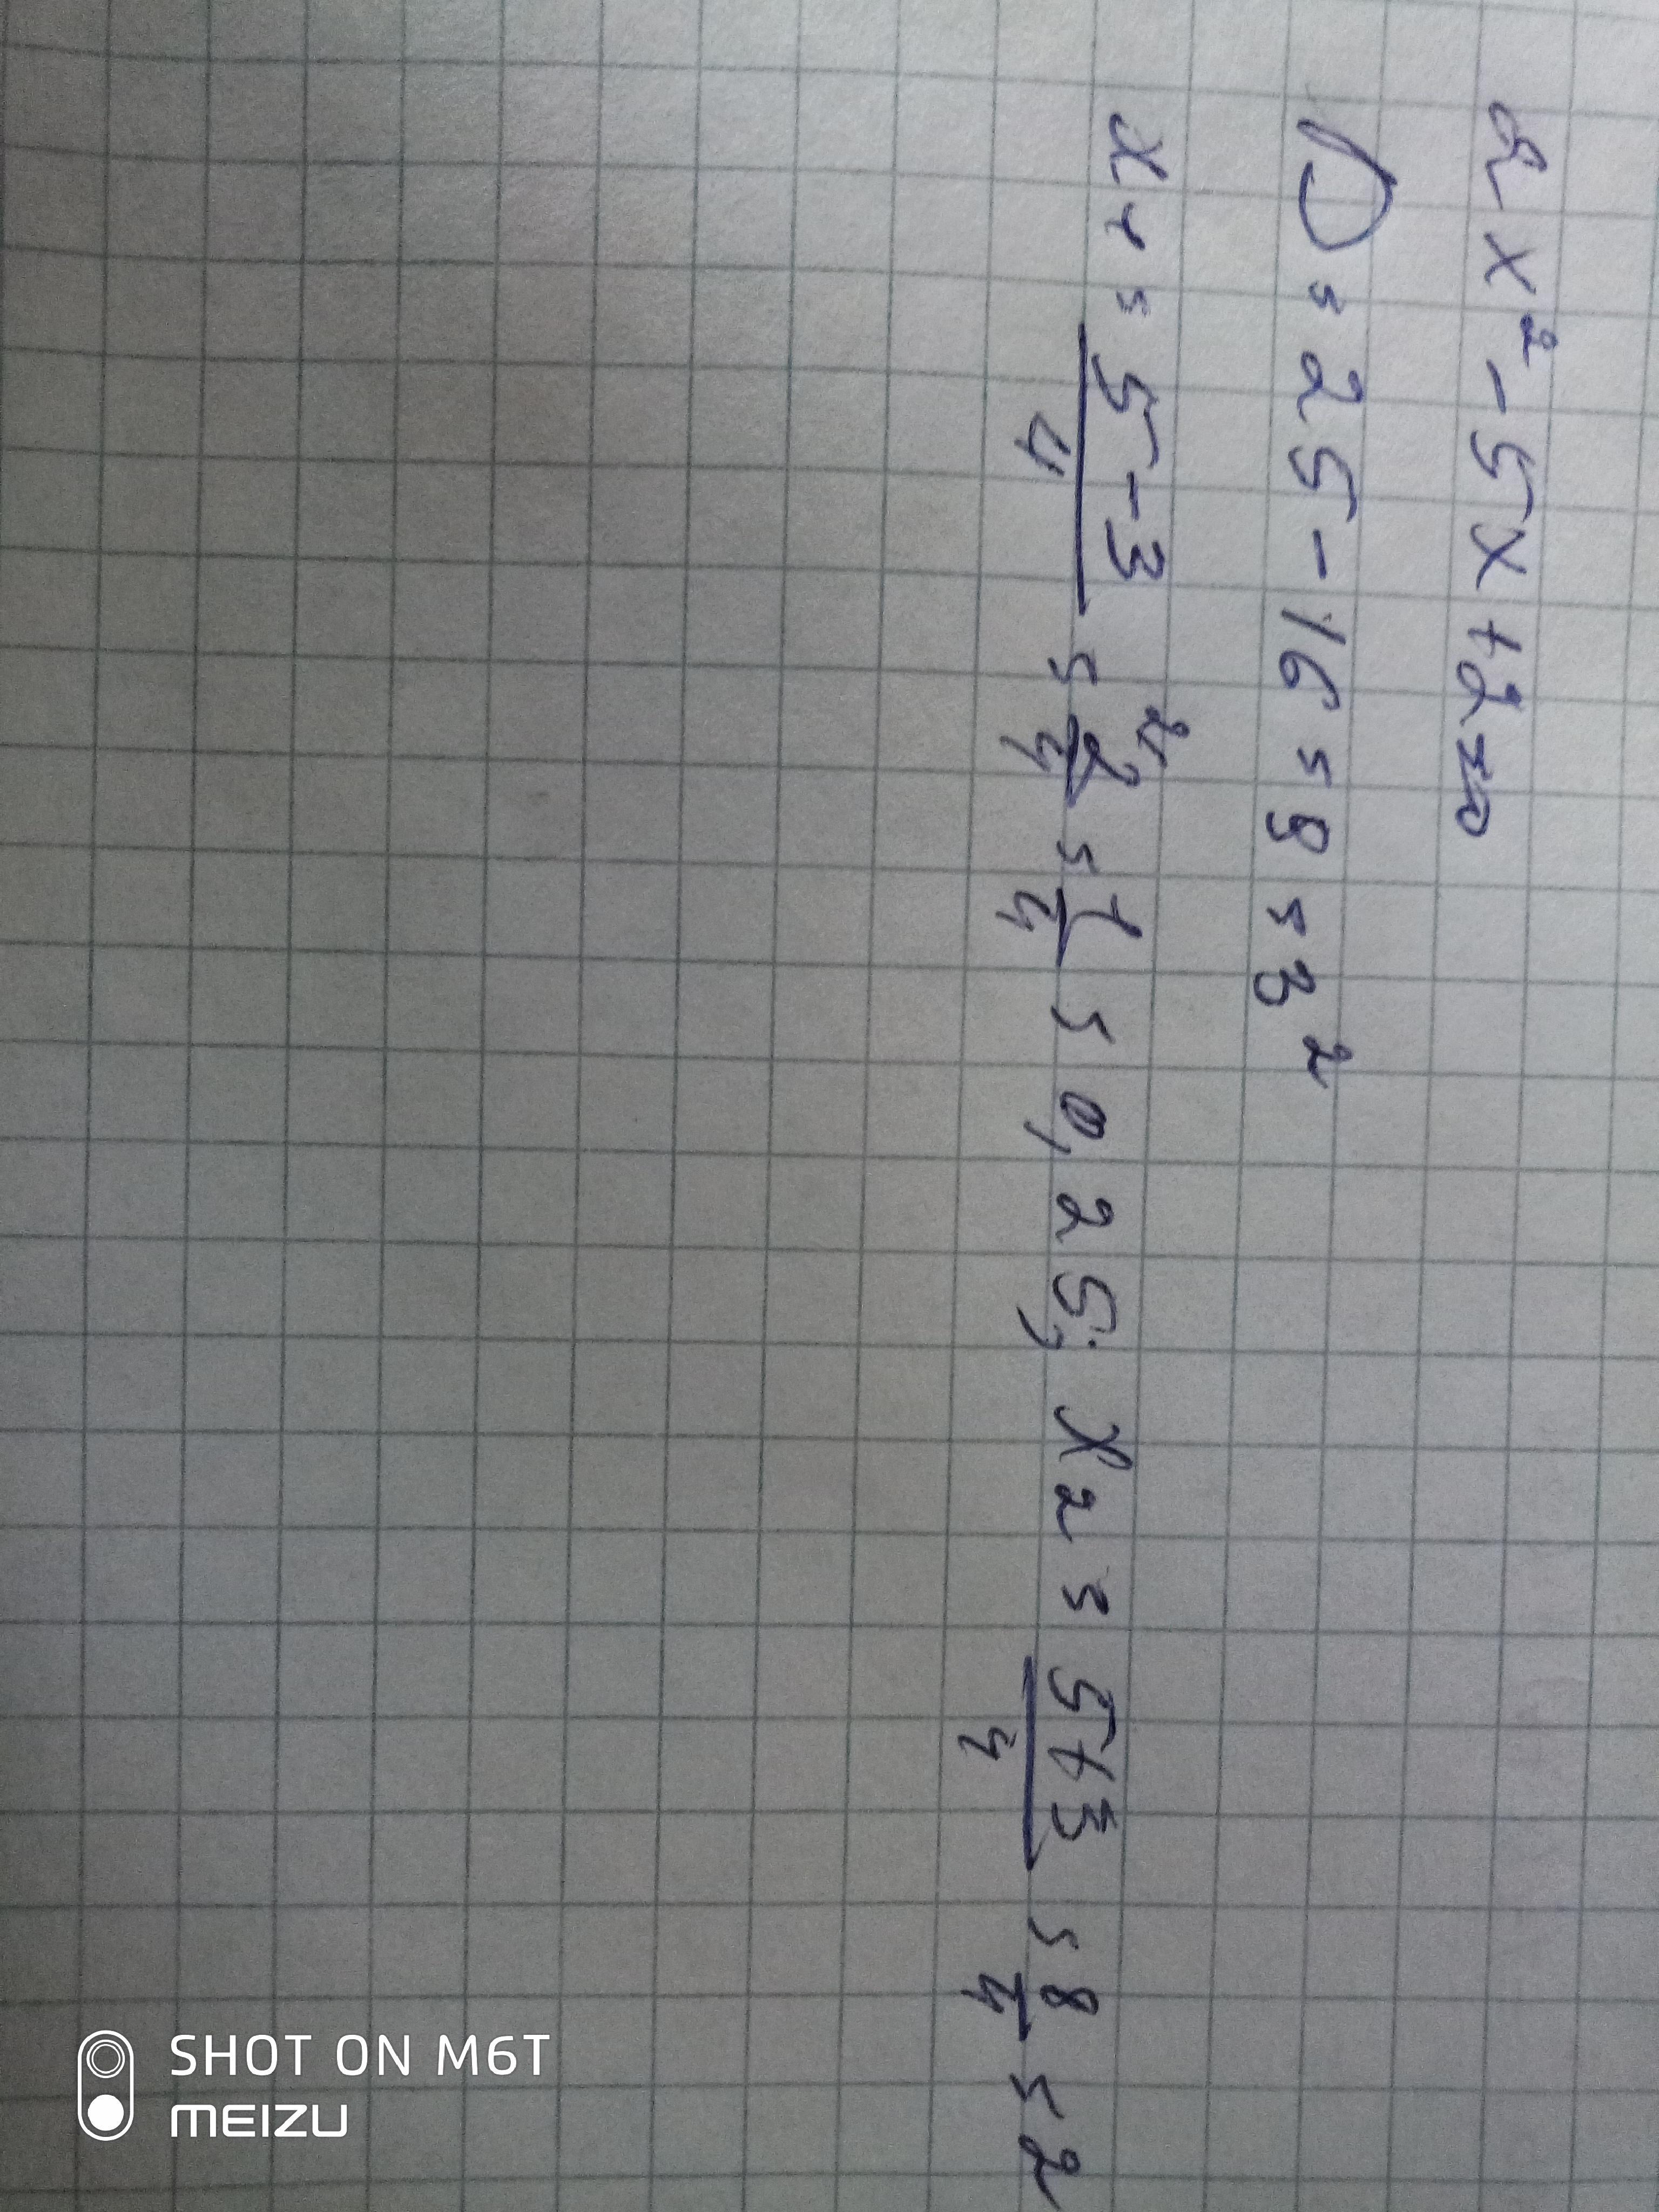 2x² - 5x + 2 = 0
D = 25 - 16 = 9 = 3²
x₁ = 5-3/4 = 2/4 = 1/4 = 0,25; x₂ = 5+3/4 = 8/4 = 2
SHOT ON M6T
MEIZU